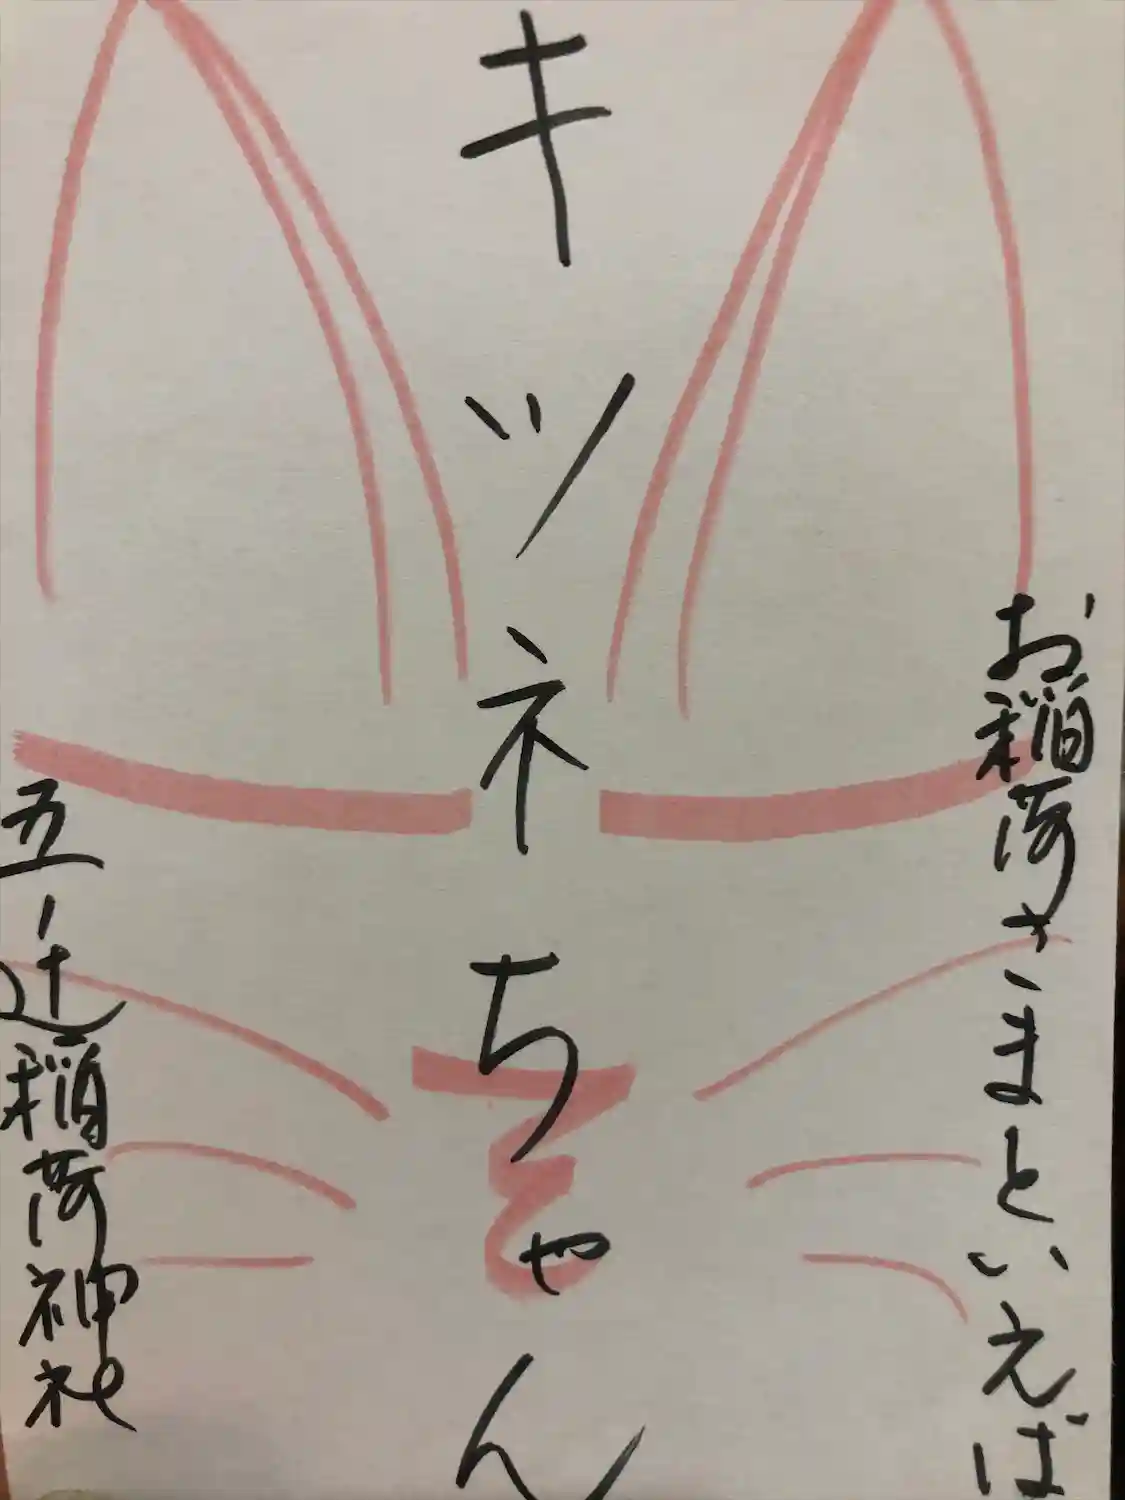 お稲荷さまといえば
キツネちゃん
五辻稲荷神社